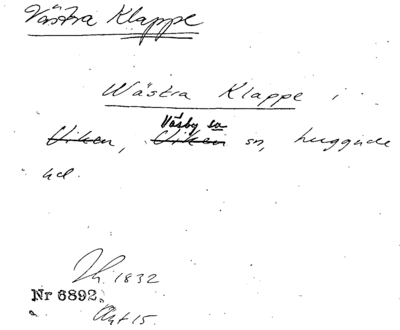 Västra Klappe
Wästra Klappe i
Väsby sn
Viken, Viken sn, Luggude
hd.
1832
Nr 6892
Akt 15.